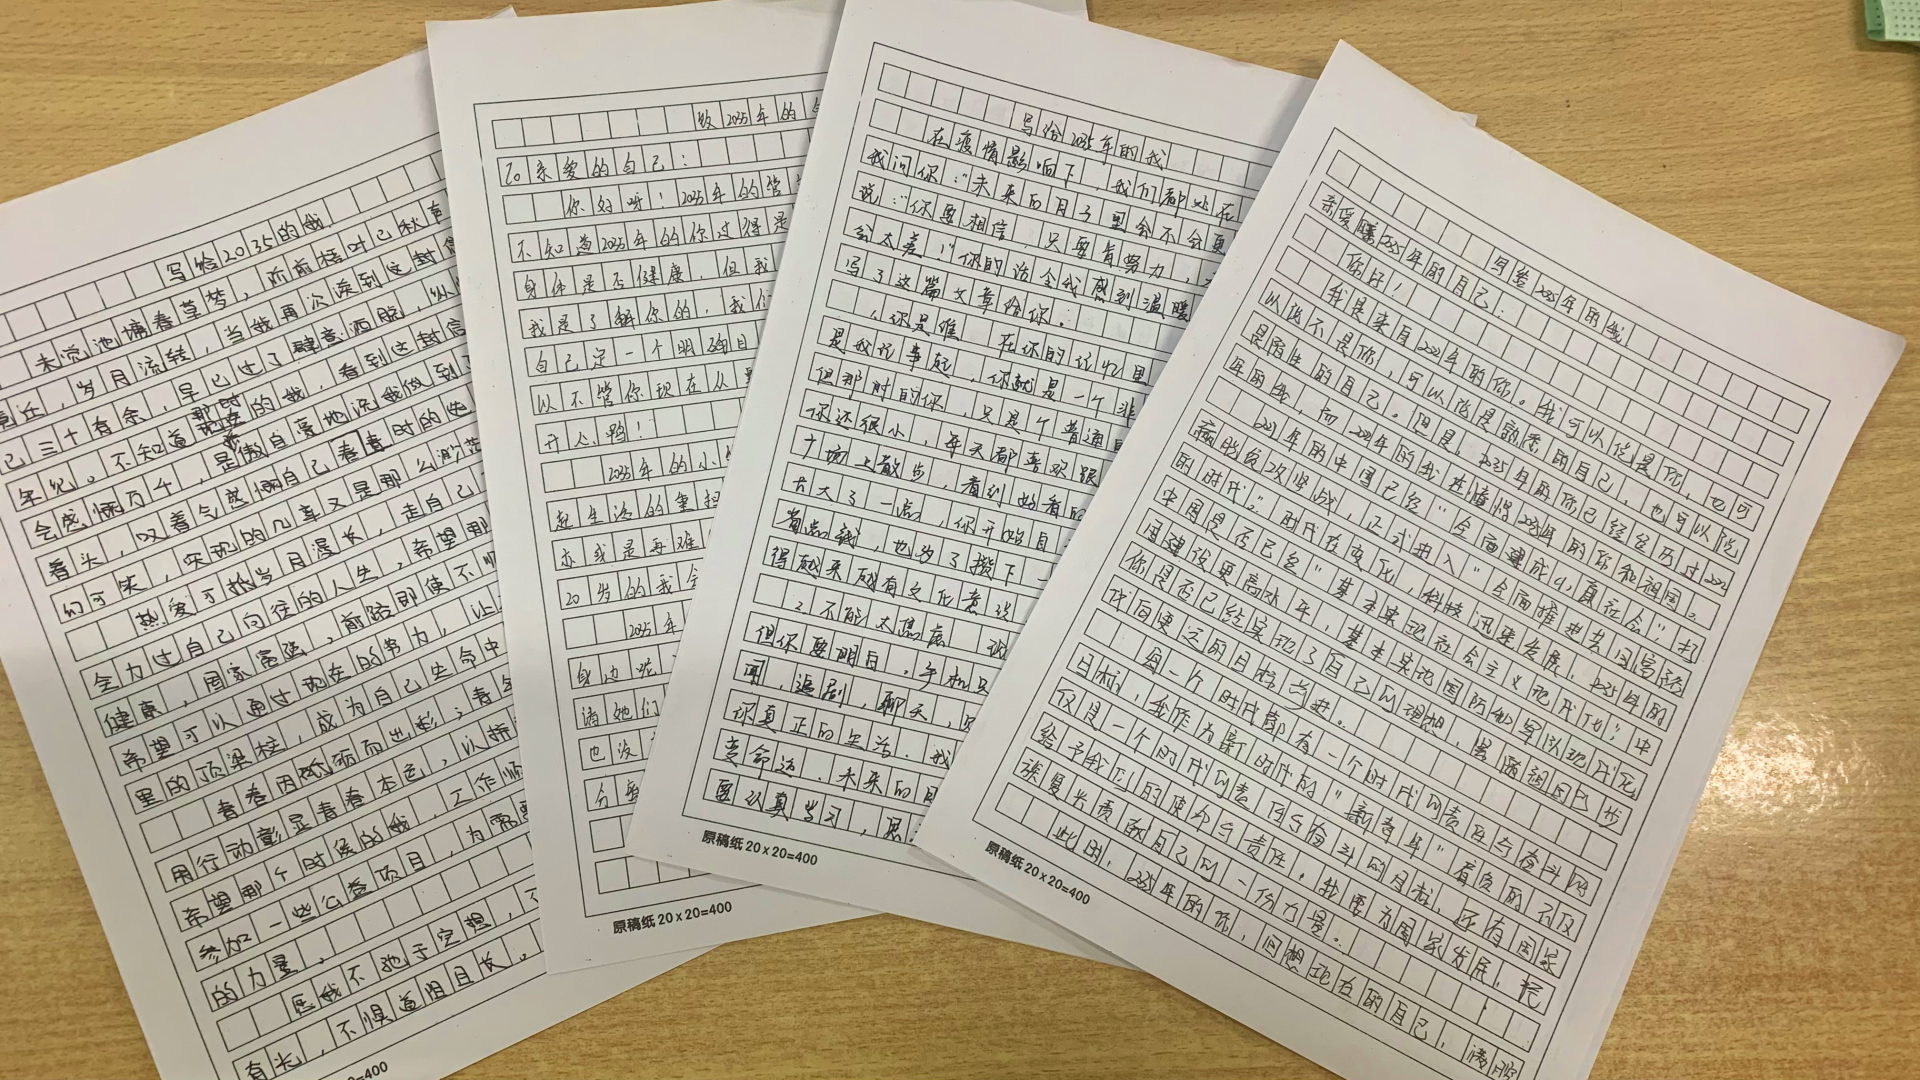 写给2035的我
未觉池塘春草梦，阶前梧叶已秋声
竟迁，岁月流转，当我再次读到这封信
已三十有余，早已过了肆意洒脱，纵
年纪。不知道那时的我，看到这封信
会感慨万千，是傲自豪地说我做到了
着头，叹着气感慨自己青春时的
们可笑，实现的几率又是那么渺茫
热爱可抵岁月漫长，走自己
全力过自己向往的人生，希望那
健康，国家富强，前路即使不顺
希望可以通过现在的努力，让
里的顶梁柱，成为自己生命中
青春因磨砺而出彩；青
用行动彰显青春本色，以拼
希望那个时候的我，工作顺
参加一些公益项目，为需要
的力量，
愿我不驰于空想，不
有光，不惧道阻且长。
致2035年的
亲爱的自己：
你好呀！2035年的管
不知道2035年的你过得是
身体是否健康，但我
我是了解你的，我们
自己定一个明确目
以不管你现在从事
开心鸭！
2035年的小
起生活的重担
亦或是再难
20岁的我
2035年
身边呢
请她们
也没
分
原稿纸20×20=400
写给2035年的我
在疫情影响下，我们都处在
我问你：“未来的日子里会不会更
说：“你要相信，只要肯努力，
会太差！”你的话令我感到温暖
写了这篇文章给你。
1、你是谁 在你的记忆里
是故记事起，你就是一个非
但那时的你，只是个普通的
你还很小，每天都喜欢跟
广场上散步，看到好看的
长大了一点，你开始自
省点钱，也为了攒下一
得越来越有文化意识
2、不能太焦虑
但你要明白，手机只
闻，追剧，聊天，
你真正的生活。我
变命运，未来的
要认真学习，
原稿纸20×20=400
写给2035年的我
亲爱的2035年的自己：
你好！
我是来自2021年的你。我可以说是你，也可
以说不是你，可以说是熟悉的自己，也可以说
是陌生的自己。但是，2035年的你已经经历过2021
年的我，而2021年的我在憧憬2035年的你和祖国。
2021年的中国已经“全面建成小康社会”，打
赢脱贫攻坚战，正式进入“全面推进共同富裕
的时代。”时代在变化，科技迅速发展，2035年的
中国是否已经“基本实现社会主义现代化”；中
国建设更高水平，基本实现国防和军队现代化
你是否已经实现了自己的理想，紧随祖国的步
伐向更远的目标前进。
每一个时代都有一个时代的责任与奋斗的
目标，我作为新时代的“新青年”肩负的不仅
仅是一个时代的责任与奋斗的目标，还有国家
给予我们的使命与责任，我要为国家发展，民
族复兴贡献自己的一份力量。
此时，2035年的你，回想现在的自己，
原稿纸20×20=400